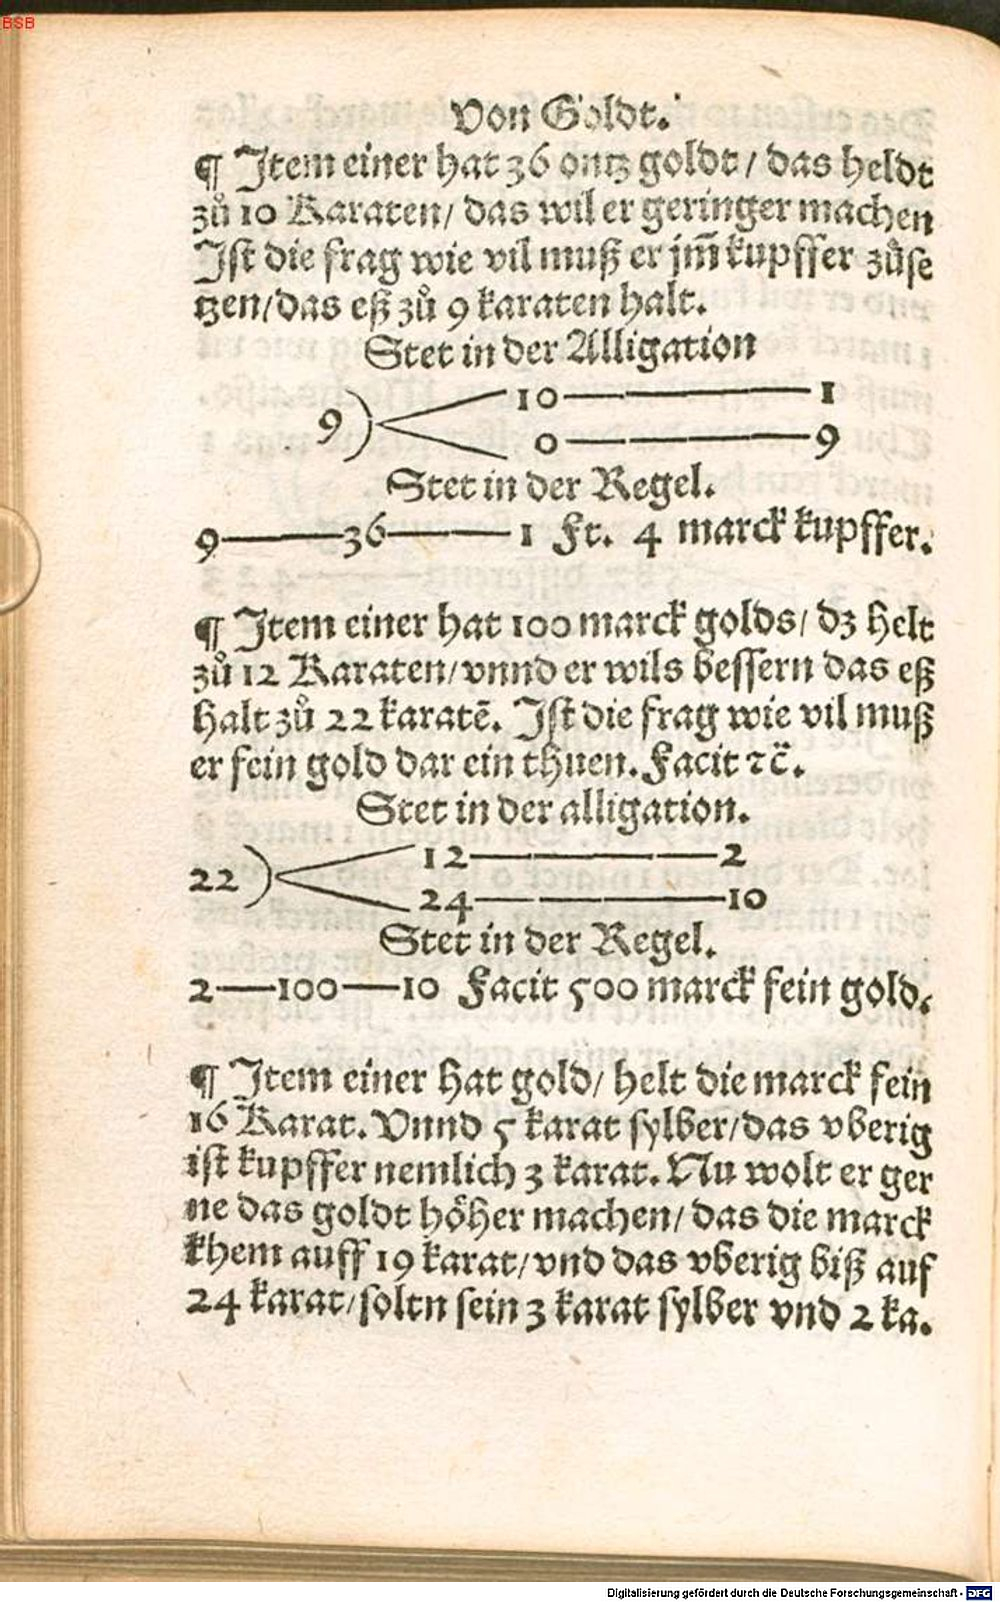 BSB
Von Goldt.
¶ Item einer hat 36 ontz goldt / das heldt
zů 10 Karaten / das wil er geringer machen
Ist die frag wie vil muß er jm̄ kupffer zůse
tzen / das eß zů 9 karaten halt.
Stet in der Alligation
10 — — — 1
9 )
0 — — — 9
Stet in der Regel.
9 — 36 — 1 Ft. 4 marck kupffer.
¶ Item einer hat 100 marck golds / dz helt
zů 12 Karaten / vnnd er wils bessern das eß
halt zů 22 karatē. Ist die frag wie vil muß
er fein gold dar ein thuen. Facit ꝛc̄.
Stet in der alligation.
12 — — — 2
22 )
24 — — — 10
Stet in der Regel.
2 — 100 — 10 Facit 500 marck fein gold.
¶ Item einer hat gold / helt die marck fein
16 Karat. Vnnd 5 karat sylber / das vberig
ist kupffer nemlich 3 karat. Nu wolt er ger
ne das goldt höher machen / das die marck
khem auff 19 karat / vnd das vberig biß auf
24 karat / soltn sein 3 karat sylber vnd 2 ka.
Digitalisierung gefördert durch die Deutsche Forschungsgemeinschaft - DFG